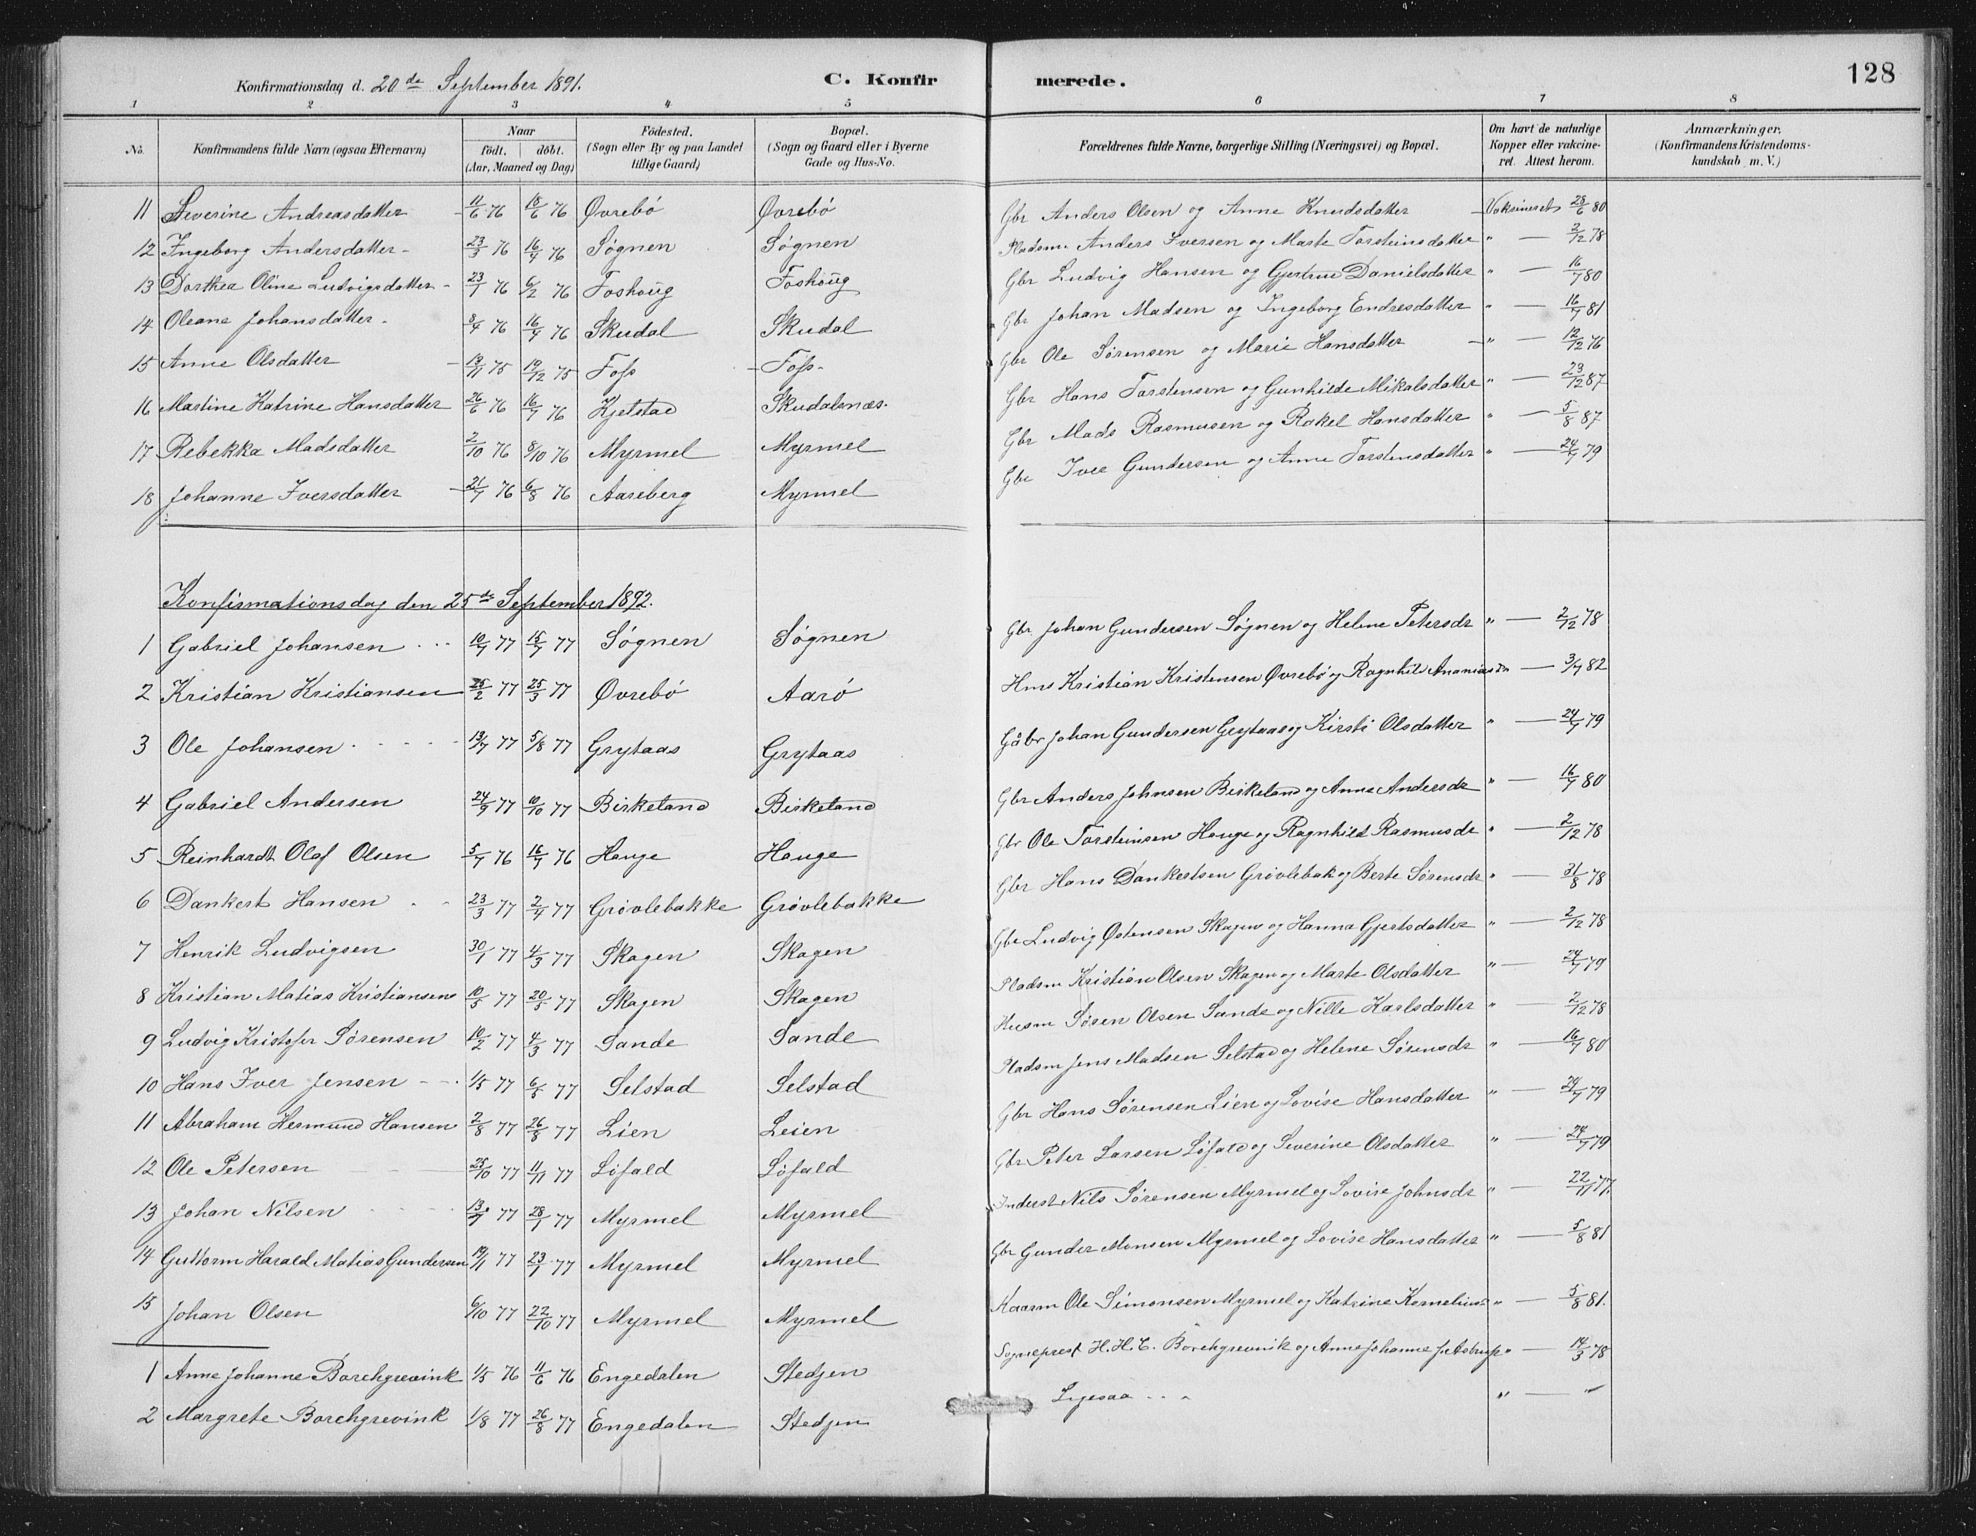 Konfirmationsdag d. 20de September 1891. C. Konfirmerede. 128
1 2 3 4 5 6 7 8
No. Konfirmandens fulde Navn (ogsaa Efternavn) Naar födt. döbt. (Aar, Maaned og Dag) Födested. (Sogn eller By og paa Landet tillige Gaard) Bopæl. (Sogn og Gaard eller i Byerne Gade og Hus-No. Forældrenes fulde Navne, borgerlige Stilling (Næringsvei) og Bopæl. Om havt de naturlige Kopper eller vaccineret. Attest herom. Anmærkninger. (Konfirmandens Kristendomskundskab m. V.)
11 Severine Andreasdatter 11/6 76 18/6 76 Øvrebö Øvrebö Gbr Anders Olsen og Anne Knudsdatter Vaksineret 28/6 80
12 Ingeborg Andersdatter 23/3 76 16/4 76 Søgnen Søgnen Pladsm. Anders Iversen og Marte Torsteinsdatter " — 2/12 78
13 Dorthea Oline Ludvigsdatter 23/1 76 6/2 76 Foshoug Foshoug Gbr Ludvig Hansen og Gjertrue Danielsdatter " — 16/7 80
14 Oleane Johansdatter 8/4 76 16/4 76 Skudal Skudal Gbr Johan Madsen og Ingeborg Endresdatter " — 16/7 81
15 Anne Olsdatter 13/11 75 19/12 75 Foss Foss Gbr Ole Sørensen og Marie Hansdatter " — 12/12 76
16 Martine Katrine Hansdatter 26/6 76 16/7 76 Kjelstad Skudalsnæs Gbr Hans Torstensen og Gunhilde Mikalsdatter " — 23/12 87
17 Rebekka Madsdatter 2/10 76 8/10 76 Myrmel Myrmel Gbr Mads Rasmusen og Rakel Hansdatter " — 5/8 87
18 Johanne Iversdatter 21/7 76 6/8 76 Aareberg Myrmel Gbr Iver Gundersen og Anne Torstensdatter " — 24/7 79
Konfirmationsdag den 25de September 1892.
1 Gabriel Johansen 10/7 77 15/7 77 Søgnen Søgnen Gbr Johan Gundersen Søgnen og Helene Petersdr " — 2/12 78
2 Kristian Kristiansen 25/2 77 25/3 77 Øvrebö Aarö Hms Kristian Kristensen Øvrebö og Ragnhild — 3/7 82
3 Ole Johansen 13/7 77 5/8 77 Grytaas Grytaas Gåbr Johan Gundersen Grytaas og Kirsti Olsdatter " — 24/7 79
4 Gabriel Andersen 24/9 77 10/10 77 Birkeland Birkeland Gbr Anders Johnsen Birkeland og Anne Andersdr " — 16/7 80
5 Reinhardt Olaf Olsen 5/7 76 16/7 76 Hauge Hauge Gbr Ole Torsteinsen Hauge og Ragnhild Rasmusdr " — 2/12 78
6 Dankert Hansen 23/3 77 2/4 77 Grövlebakke Grövlebakke Gbr Hans Dankertsen Grövlebak og Berte Sörensdr " — 31/8 78
7 Henrik Ludvigsen 30/1 77 4/3 77 Skagen Skagen Gbr Ludvig Østensen Skagen og Hanna Gjertsdatter " — 2/12 78
8 Kristian Matias Kristiansen 10/5 77 20/5 77 Skagen Skagen Pladsm Kristian Olsen Skagen og Marte Olsdatter " — 24/7 79
9 Ludvig Kristofer Sørensen 10/2 77 4/3 77 Sande Sande Husm Søren Olsen Sande og Nille Karlsdatter " — 2/12 78
10 Hans Iver Jensen 1/5 77 6/5 77 Selstad Selstad Pladsm Jens Madsen Selstad og Helene Sørensdr " — 16/7 80
11 Abraham Hermund Hansen 2/8 77 26/8 77 Lien Leien Gbr Hans Sørensen Lien og Lovise Hansdatter " — 24/7 79
12 Ole Petersen 25/10 77 11/11 77 Löfald Löfald Gbr Peter Larsen Löfald og Severine Olsdatter " — 24/7 79
13 Johan Nilsen 13/7 77 28/7 77 Myrmel Myrmel Inderst Nils Sørensen Myrmel og Lovise Johnsdr " — 22/11 77.
14 Guttorm Harald Matias Gundersen 19/11 77 23/1 77 Myrmel Myrmel Gbr Gunder Monsen Myrmel og Lovise Hansdatter " — 5/8 81
15 Johan Olsen 6/10 77 22/10 77 Myrmel Myrmel Kaarm Ole Simonsen Myrmel og Katrine " — 5/8 81.
1 Anne Johanne Borchgrevink 1/5 76 11/6 76 Engedalen Stedjen Sogneprest H. H. C. Borchgrevink og Anne Johanne f. Astrup " — 14/3 78
2 Margrete Borchgrevink 1/8 77 26/8 77 Engedalen Stedjen Ligesaa " — "